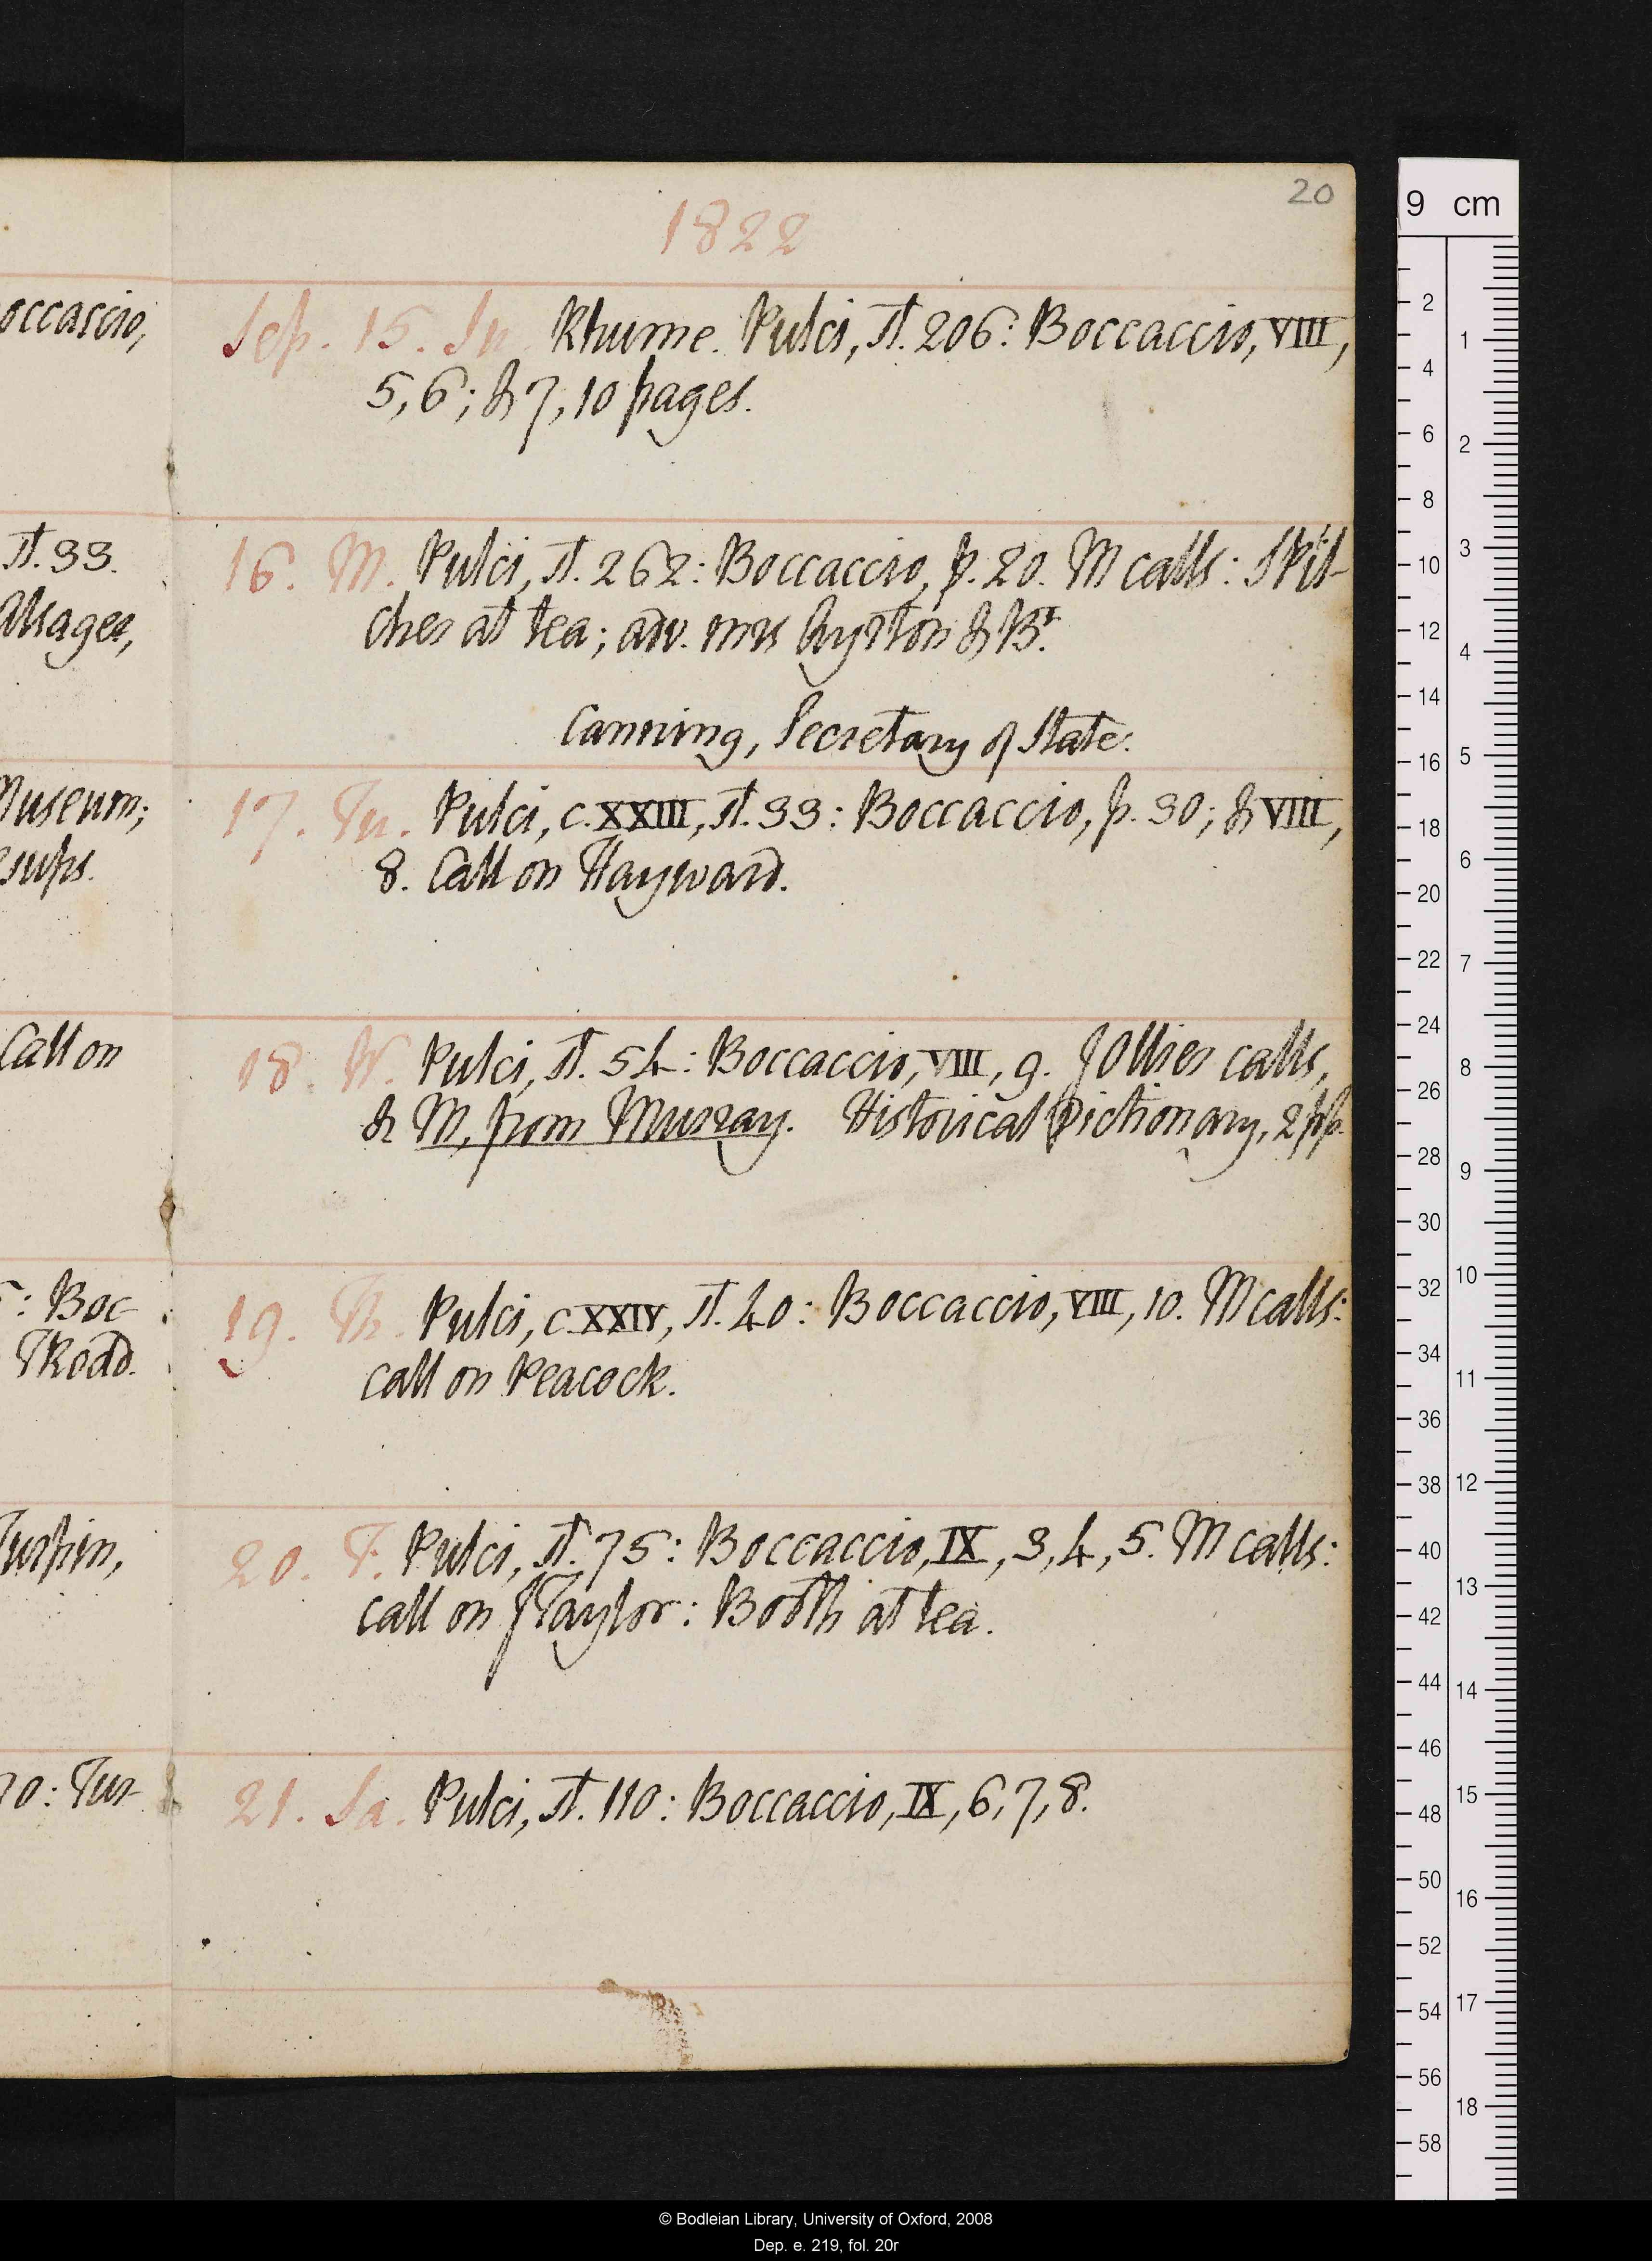 20
1822
occaccio,
Sep. 15. Su. Rhume. Pulci, st. 206: Boccaccio, VIII,
5, 6; & 7, 10 pages.
st. 33.
16. M. Pulci, st. 262: Boccaccio, p. 20. M calls: Pil-
Alsager,
cher at tea; adv. mrs Ayrton & Br.
Canning, Secretary of State.
Museum;
17. Tu. Pulci, c. XXIII, st. 33: Boccaccio, p. 30; & VIII,
sups.
8. Call on Hayward.
Call on
18. W. Pulci, st. 54: Boccaccio, VIII, 9. J Ollier calls,
& M, from Murray. Historical Dictionary, 2 pp.
: Boc-
19. Th. Pulci, c. XXIV, st. 40: Boccaccio, VIII, 10. M calls:
TRoad.
call on Peacock.
Turpin,
20. F. Pulci, st. 75: Boccaccio, IX, 3, 4, 5. M calls:
call on JTaylor: Booth at tea.
70: Tur-
21. Sa. Pulci, st. 110: Boccaccio, IX, 6, 7, 8.
9 cm
2
1
4
6
2
8
10
3
12
4
14
16
5
18
6
20
22
7
24
8
26
28
9
30
32
10
34
11
36
38
12
40
13
42
44
14
46
15
48
50
16
52
54
17
56
18
58
© Bodleian Library, University of Oxford, 2008
Dep. e. 219, fol. 20r